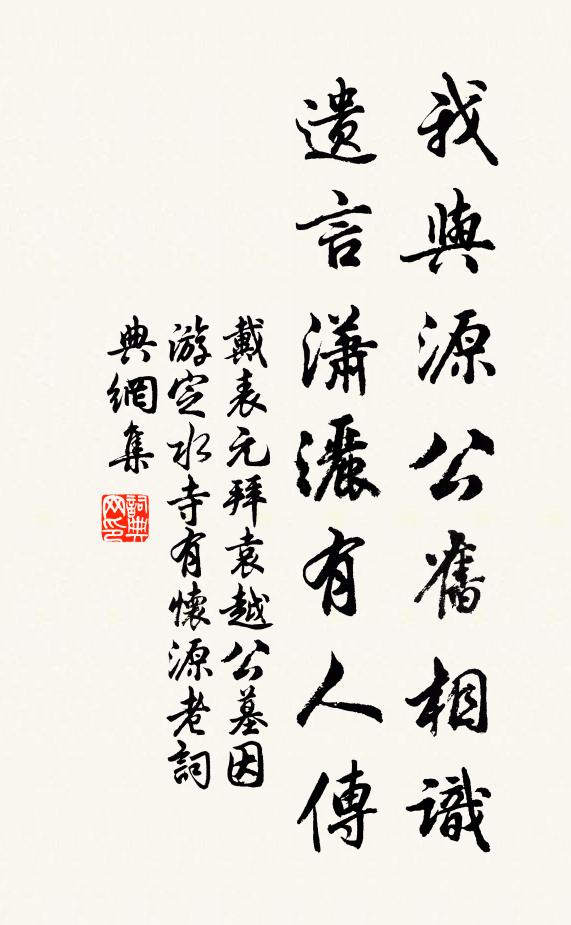 我與源公舊相識
遺言瀟灑有人傳
戴表元拜袁越公墓因
游定水寺有懷源老詞
典網集
詞典網印